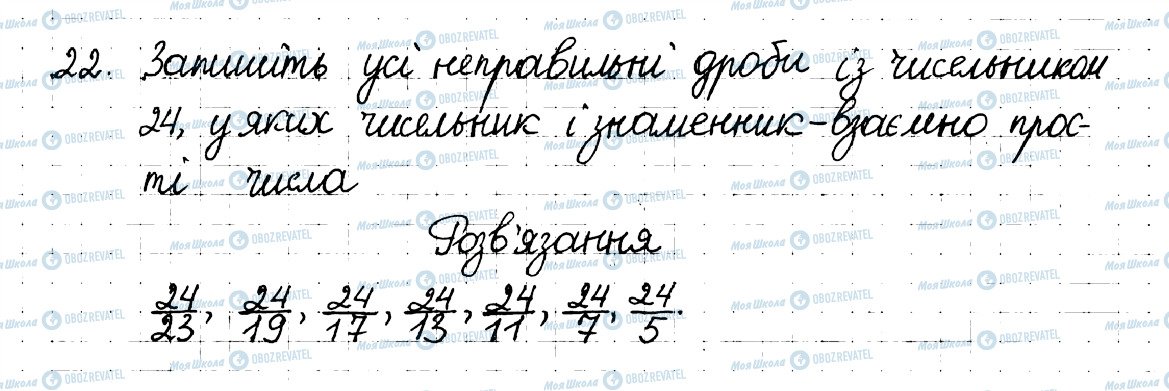 22. Запишіть усі неправильні дроби із чисельником
24, у яких чисельник і знаменник - взаємно прос-
ті числа
Розв'язання
24/23, 24/19, 24/17, 24/13, 24/11, 24/7, 24/5.